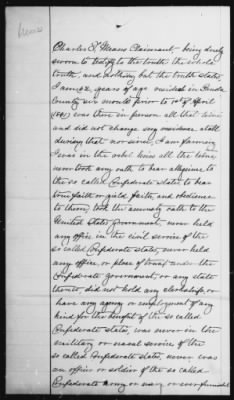 Means
Charles L Means Claimant being duly
sworn to testify to the truth the whole
truth, and nothing but the truth states
I am 52 years of age resided in Hinds
County six months prior to 1st of April
(1861) was there in person all that time
and did not change my residence at all
during that nor since, I am farming
I was in the rebel lines all the time
never took any oath to bear allegiance to
the so called Confederate States, to bear
true faith or yield faith, and obedience
to them, took the amnesty oath to the
United States Government, never held
any office in the civil service of the
so called Confederate States, never held
any office, or place of trust under the
Confederate government, or any state
thereof, did not hold any clerkship, or
have any agency or employment of any
kind for the benefit of the so called
Confederate States, was never in the
military or naval service of the
so called Confederate States, never was
an officer or soldier of the so called
Confederate Army or navy, or ever furnished